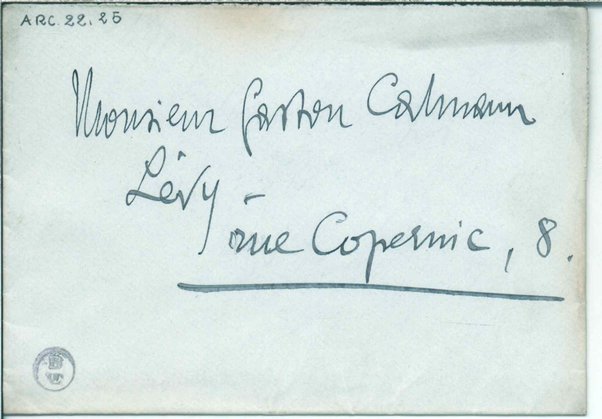 ARC. 22, 25
Monsieur Gaston Calmann
Lévy -
rue Copernic, 8.
B
T